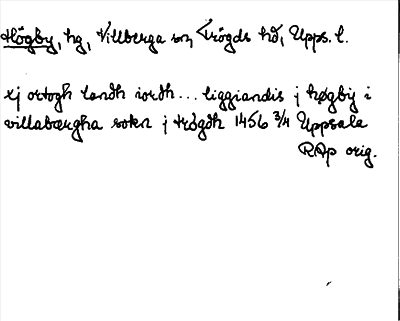 Högby, hg, Villberga sn, Trögds hd, Upps. l.
xj ortogh landh iordh... liggiandis j høgby i
villabærgha sokn j trögdh 1456 3/4 Uppsala
RAp orig.